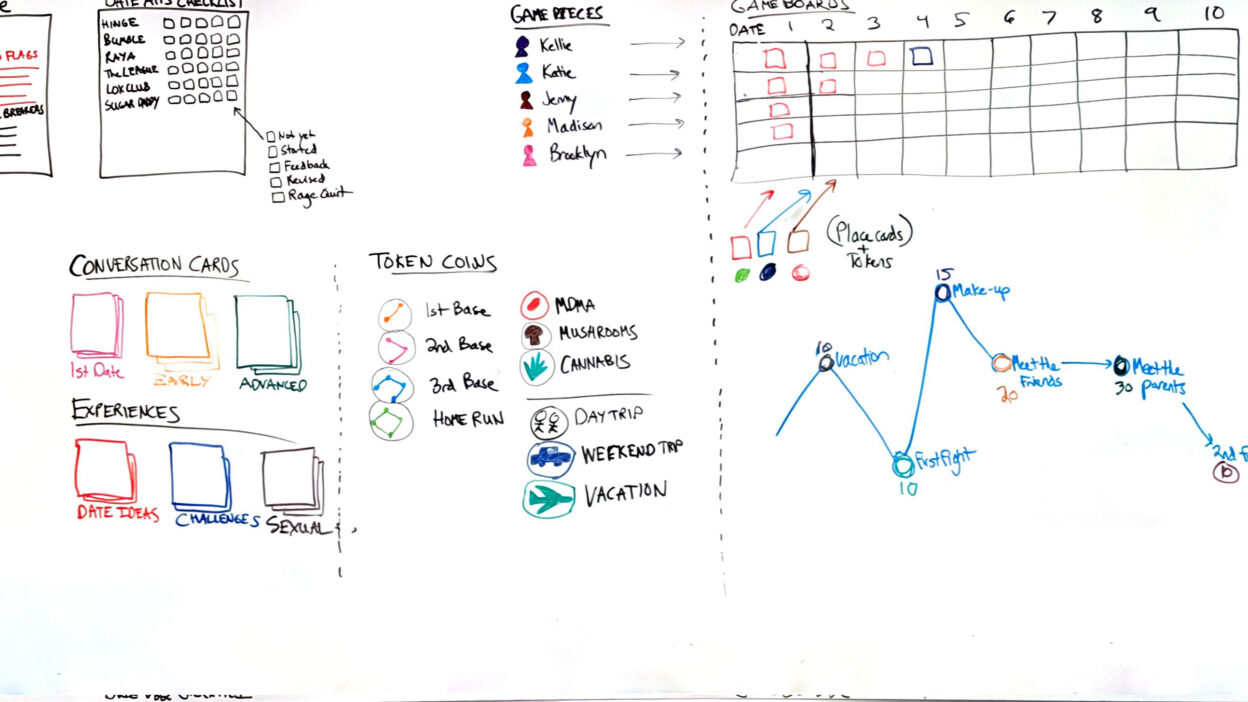 DATE APPS CHECKLIST
HINGE
BUMBLE
RAYA
The LEAGUE
LOX CLUB
SUGAR DADDY
Not yet
Started
Feedback
Revised
Rage Quit
FLAGS
BREAKERS
GAME PIECES
Kellie
Katie
Jenny
Madison
Brooklyn
GAME BOARDS
DATE 1 2 3 4 5 6 7 8 9 10
(Place cards)
+
Tokens
CONVERSATION CARDS
1st Date
EARLY
ADVANCED
EXPERIENCES
DATE IDEAS
CHALLENGES
SEXUAL
TOKEN COINS
1st Base
2nd Base
3rd Base
HOME RUN
MDMA
MUSHROOMS
CANNABIS
DAY TRIP
WEEKEND TRIP
VACATION
10
Vacation
First Fight
10
15
Make-up
Meet the
Friends
20
Meet the
parents
30
2nd F
10